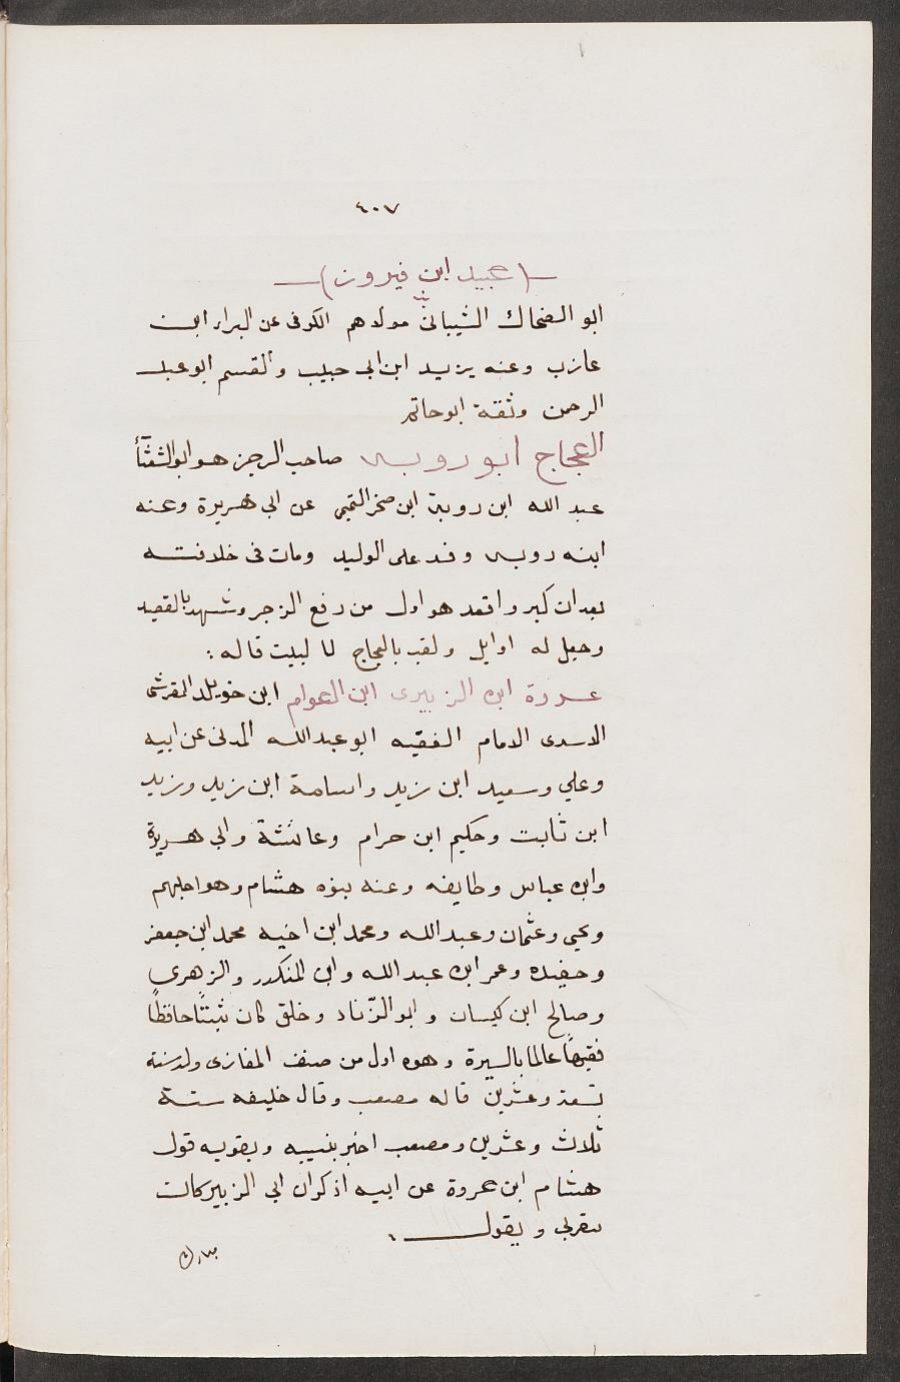 ٤٠٧
(عبيد ابن فيروز)
ابو الضحاك الشيبانى مولاهم الكوفى عن البراء ابن
عازب وعنه يزيد ابن ابى حبيب والقسم ابو عبد
الرحمن وثقة ابوحاتم
العجاج ابو روبه صاحب الرجز هو ابو الشعثآء
عبد الله ابن روبة ابن صخر التميمى عن ابى هريرة وعنه
ابنه روبه وفد على الوليد ومات فى خلافته
بعد ان كبر واقعد هو اول من رفع الرجز وشبهه بالقصيد
وجعل له اوايل ولقب بالعجاج لبيت قاله :
عروة ابن الزبيرى ابن العوام ابن خويلد القرشى
الاسدى الامام الفقيه ابو عبد الله المدنى عن ابيه
وعلي وسعيد ابن زيد واسامة ابن زيد وزيد
ابن ثابت وحكيم ابن حرام وعائشة وابى هريرة
وابن عباس وطايفه وعنه بنوه هشام وهو اجلهم
ويحيى وعثمان وعبد الله ومحمد ابن اخيه محمد ابن جعفر
وحفيده وعمر ابن عبد الله وابن المنكدر والزهرى
وصالح ابن كيسان وابو الزّناد وخلق كان ثبتًا حافظًا
فقيهًا عالما بالسيرة وهوه اول من صنف المغازى ولد سنة
تسعة وعشرين قاله مصعب وقال خليفه ستة
ثلاث وعشرين ومصعب اخبر بنسيبه ويقويه قول
هشام ابن عروة عن ابيه اذكر ان ابى الزبير كان
ينقرنى ويقول